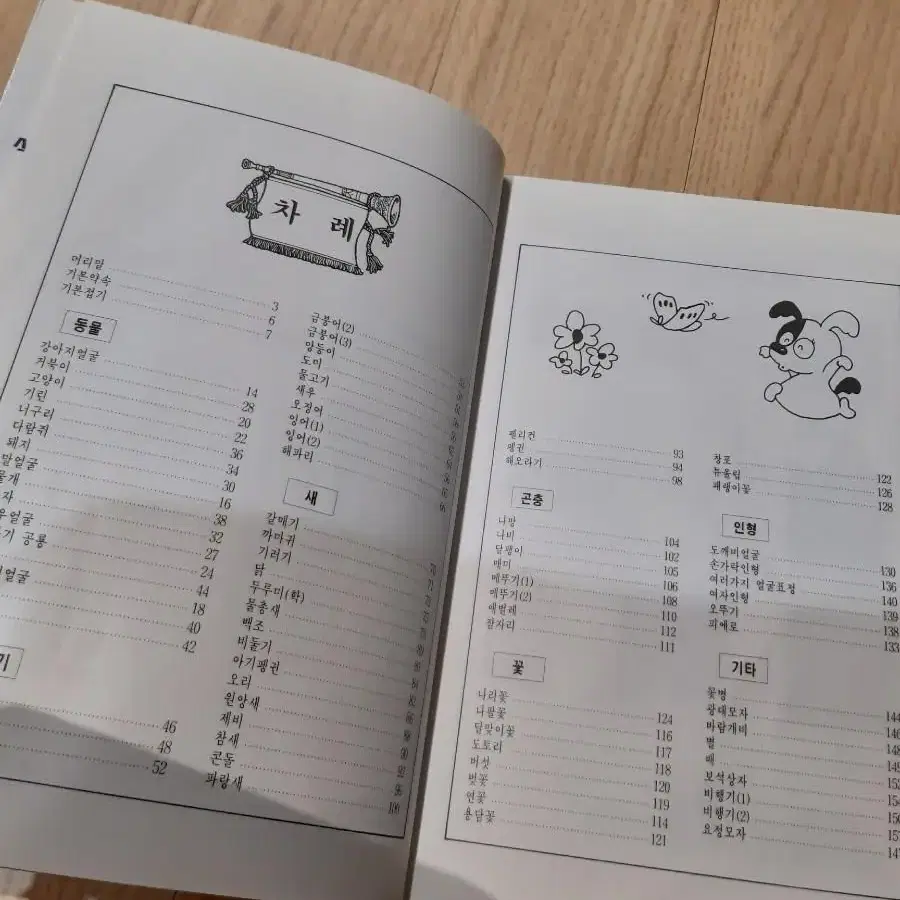 차 례
머리말 3
기본약속 6
기본접기 7
동물
강아지얼굴 14
거북이 28
고양이 20
기린 22
너구리 36
다람쥐 34
돼지 30
말얼굴 16
물개 38
자 32
우얼굴 27
기 공룡 24
44
얼굴 18
40
42
기
46
48
52
금붕어(2)
금붕어(3)
망둥이
도미
물고기
새우
오징어
잉어(1)
잉어(2)
해파리
새
갈매기
까마귀
기러기
닭
두루미(학)
물총새
백조
비둘기
아기펭귄
오리
원앙새
제비
참새
콘돌
파랑새
펠리컨 93
펭귄 94
해오라기 98
곤충
나방 104
나비 102
달팽이 105
매미 106
메뚜기(1) 108
메뚜기(2) 110
애벌레 112
잠자리 111
꽃
나리꽃 124
나팔꽃 116
달맞이꽃 117
도토리 118
버섯 120
벚꽃 119
연꽃 114
용담꽃 121
창포 122
튜울립 126
패랭이꽃 128
인형
도깨비얼굴 130
손가락인형 136
여러가지 얼굴표정 140
여자인형 139
오뚜기 138
피에로 133
기타
꽃병 144
광대모자 146
바람개비 148
별 149
배
보석상자
비행기(1)
비행기(2)
요정모자